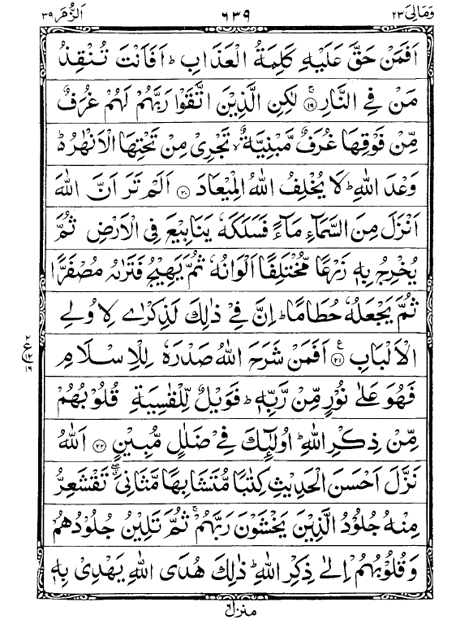 وَمَالِىَ ٢٣ ٦٣٩ اَلزُّمَر ٣٩
اَفَمَنْ حَقَّ عَلَيْهِ كَلِمَةُ الْعَذَابِ ؕ اَفَاَنْتَ تُنْقِذُ
مَنْ فِى النَّارِ ۚ‏ ﴿۱۹﴾ لٰكِنِ الَّذِيْنَ اتَّقَوْا رَبَّهُمْ لَهُمْ غُرَفٌ
مِّنْ فَوْقِهَا غُرَفٌ مَّبْنِيَّةٌ ۙ تَجْرِىْ مِنْ تَحْتِهَا الْاَنْهٰرُ ؕ
وَعْدَ اللّٰهِ ؕ لَا يُخْلِفُ اللّٰهُ الْمِيْعَادَ ﴿۲۰﴾ اَلَمْ تَرَ اَنَّ اللّٰهَ
اَنْزَلَ مِنَ السَّمَآءِ مَآءً فَسَلَكَهٗ يَنَابِيْعَ فِى الْاَرْضِ ثُمَّ
يُخْرِجُ بِهٖ زَرْعًا مُّخْتَلِفًا اَلْوَانُهٗ ثُمَّ يَهِيْجُ فَتَرٰٮهُ مُصْفَرًّا
ثُمَّ يَجْعَلُهٗ حُطَامًا ؕ اِنَّ فِىْ ذٰلِكَ لَذِكْرٰى لِاُولِى
الْاَلْبَابِ ﴿۲۱﴾ اَفَمَنْ شَرَحَ اللّٰهُ صَدْرَهٗ لِلْاِسْلَامِ
فَهُوَ عَلٰى نُوْرٍ مِّنْ رَّبِّهٖ ؕ فَوَيْلٌ لِّلْقٰسِيَةِ قُلُوْبُهُمْ
مِّنْ ذِكْرِ اللّٰهِ ؕ اُولٰٓئِكَ فِىْ ضَلٰلٍ مُّبِيْنٍ ﴿۲۲﴾ اَللّٰهُ
نَزَّلَ اَحْسَنَ الْحَدِيْثِ كِتٰبًا مُّتَشَابِهًا مَّثَانِىَ ۖ تَقْشَعِرُّ
مِنْهُ جُلُوْدُ الَّذِيْنَ يَخْشَوْنَ رَبَّهُمْ ۚ ثُمَّ تَلِيْنُ جُلُوْدُهُمْ
وَقُلُوْبُهُمْ اِلٰى ذِكْرِ اللّٰهِ ؕ ذٰلِكَ هُدَى اللّٰهِ يَهْدِىْ بِهٖ
منزل